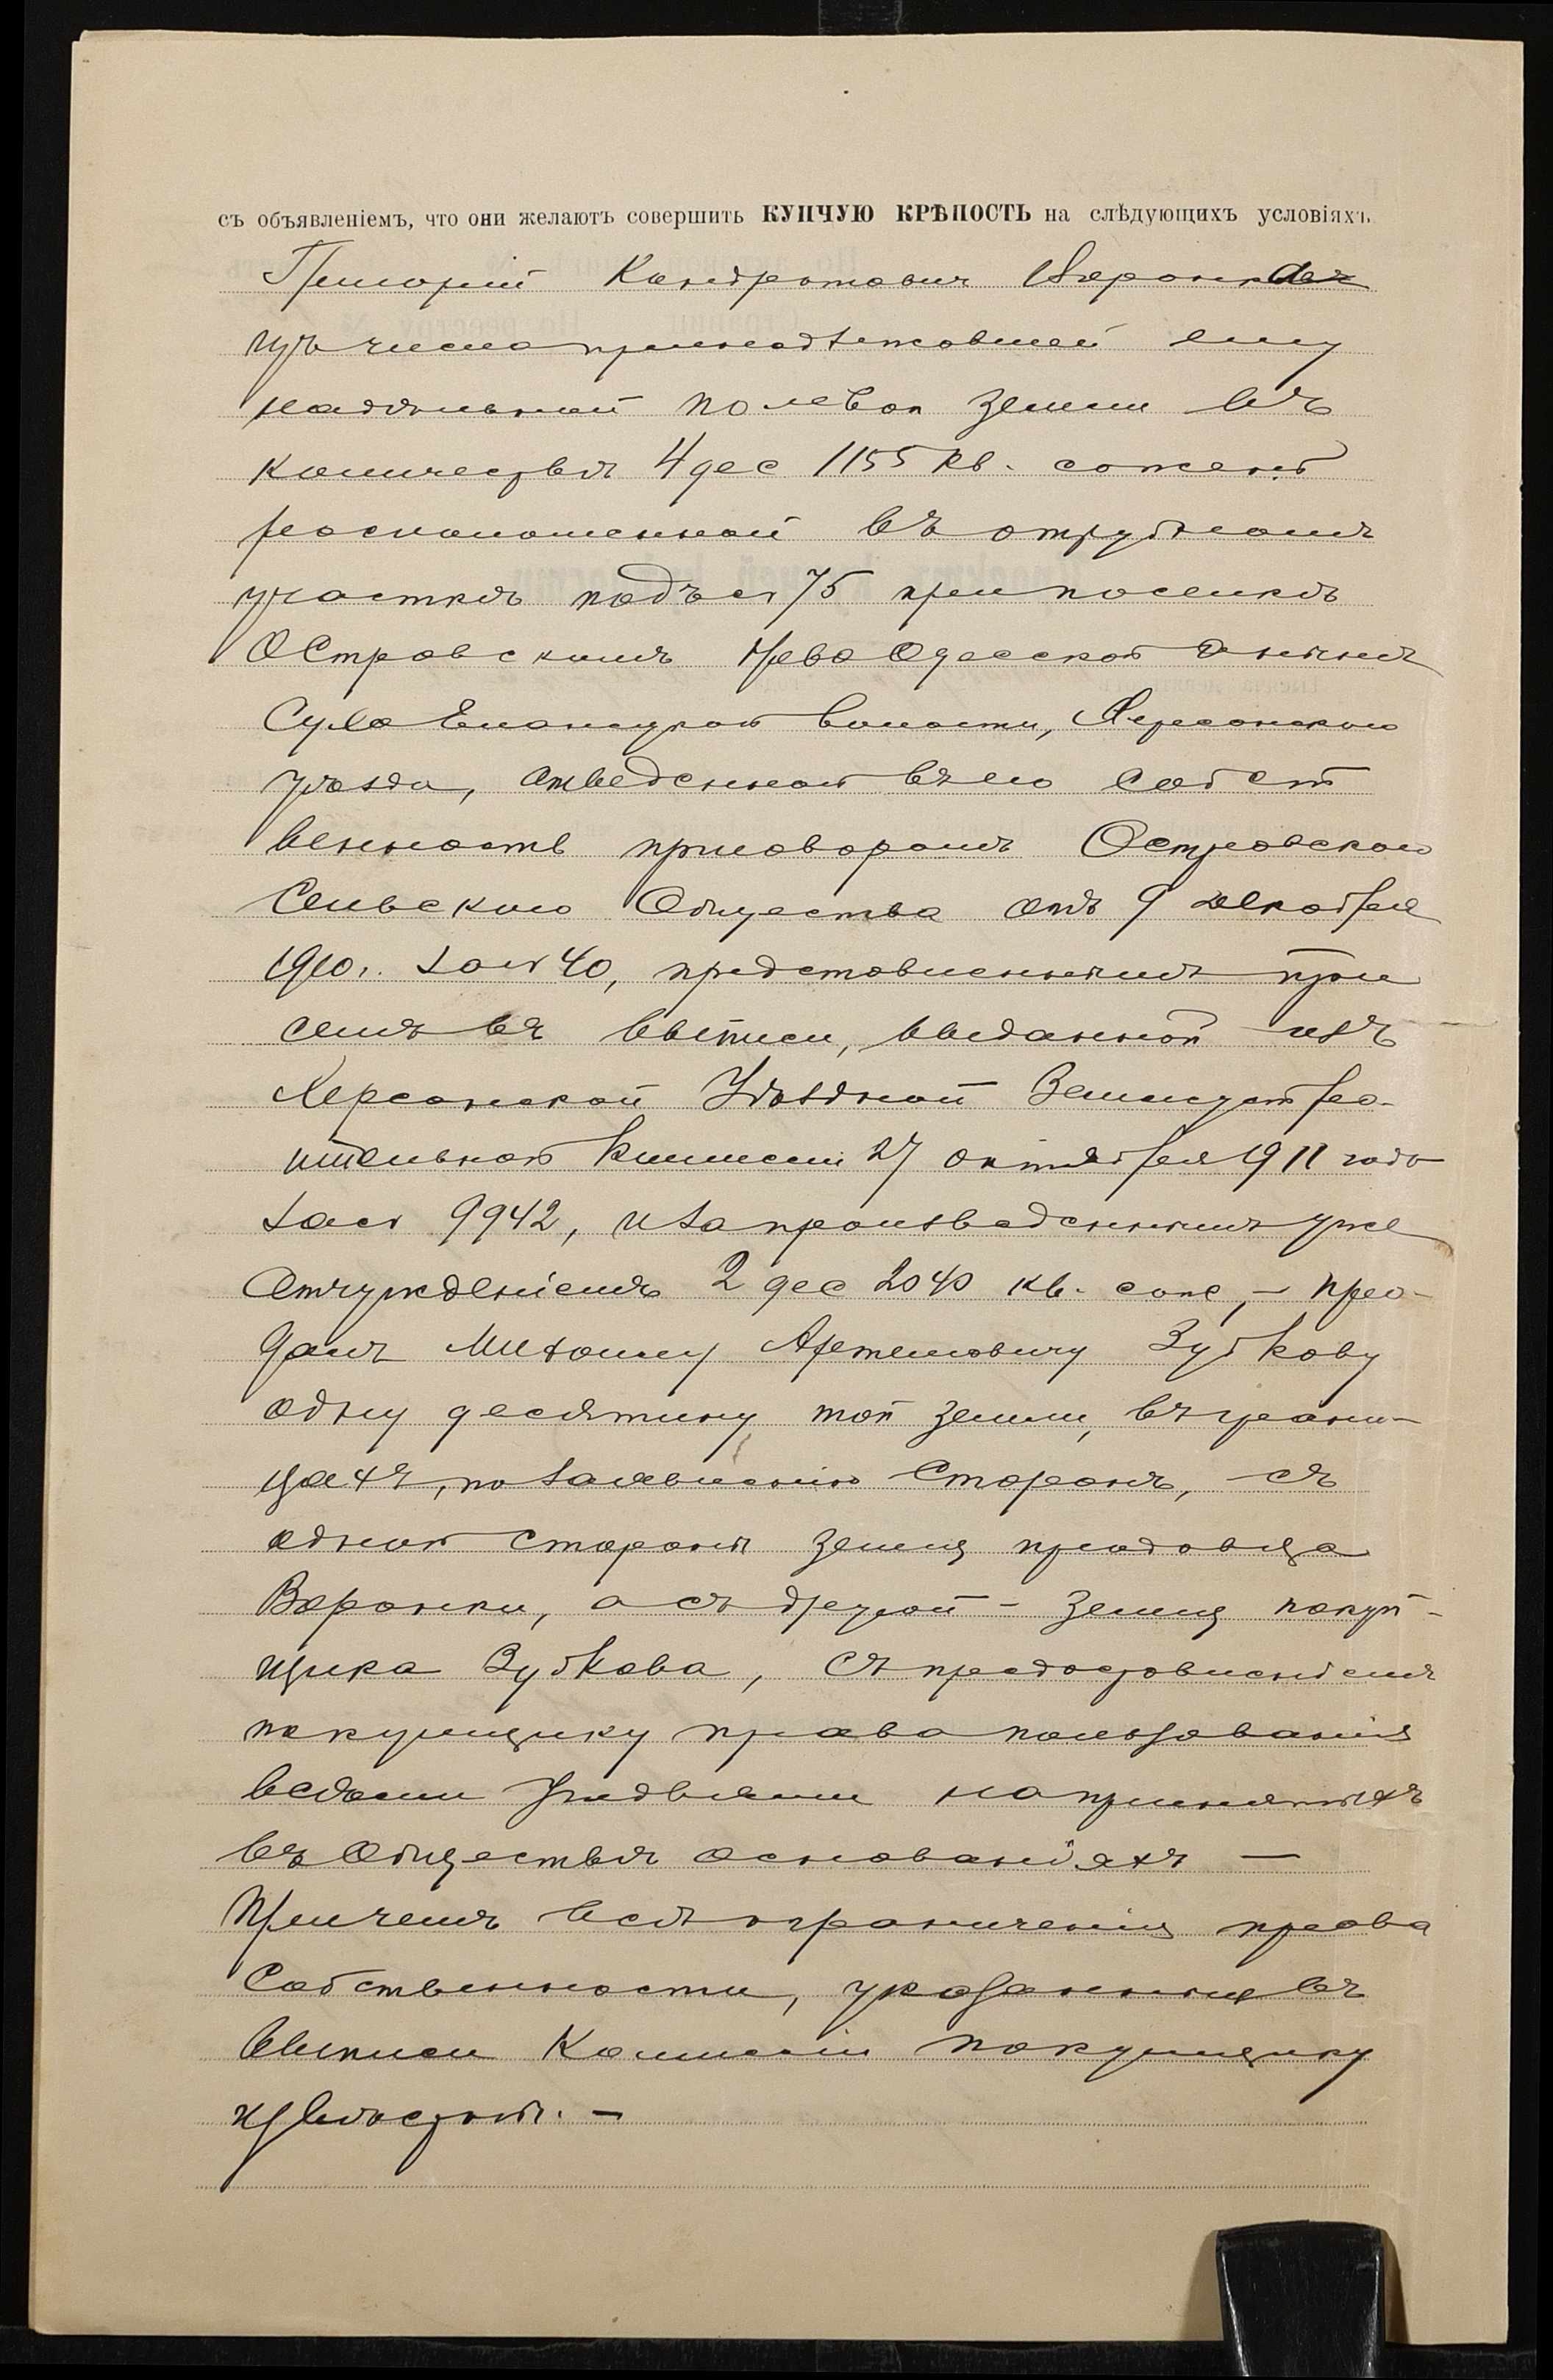 съ объявленіемъ, что они желаютъ совершить КУПЧУЮ КРѢПОСТЬ на слѣдующихъ условіяхъ
Григорій Кондратовичъ Воронка
изъ числа принадлежавшей ему
надѣльной полевой земли въ
количествѣ 4 дес 1155 кв. сажень
расположенной въ отрубномъ
участкѣ подъ № 75 при поселкѣ
Островскомъ Ново Одесской
Сухо Еланецкой волости, Херсонскаго
уѣзда, отведенной въ его собст
венность приговоромъ Островскаго
Сельскаго Общества отъ 9 декабря
1910 г. за № 40, представленнымъ при
семъ въ выписи, выданной изъ
Херсонской Уѣздной Землеустрои
тельной Комиссіи 27 октября 1911 года
за № 9942, и за произведеннымъ уже
отчужденіемъ 2 дес 2040 кв. саж, – про-
далъ Митону Артемовичу Зубкову
одну десятину той земли, въ грани-
цахъ, по заявленію сторонъ, съ
одной стороны земля продавца
Воронки, а съ другой – земля покуп-
щика Зубкова, съ предоставленіемъ
покупщику права пользованія
всѣми угодьями на принятыхъ
въ Обществѣ основаніяхъ —
Причемъ всѣ ограниченія права
собственности, указанныя въ
выписи Комиссіи покупщику
извѣстны. –